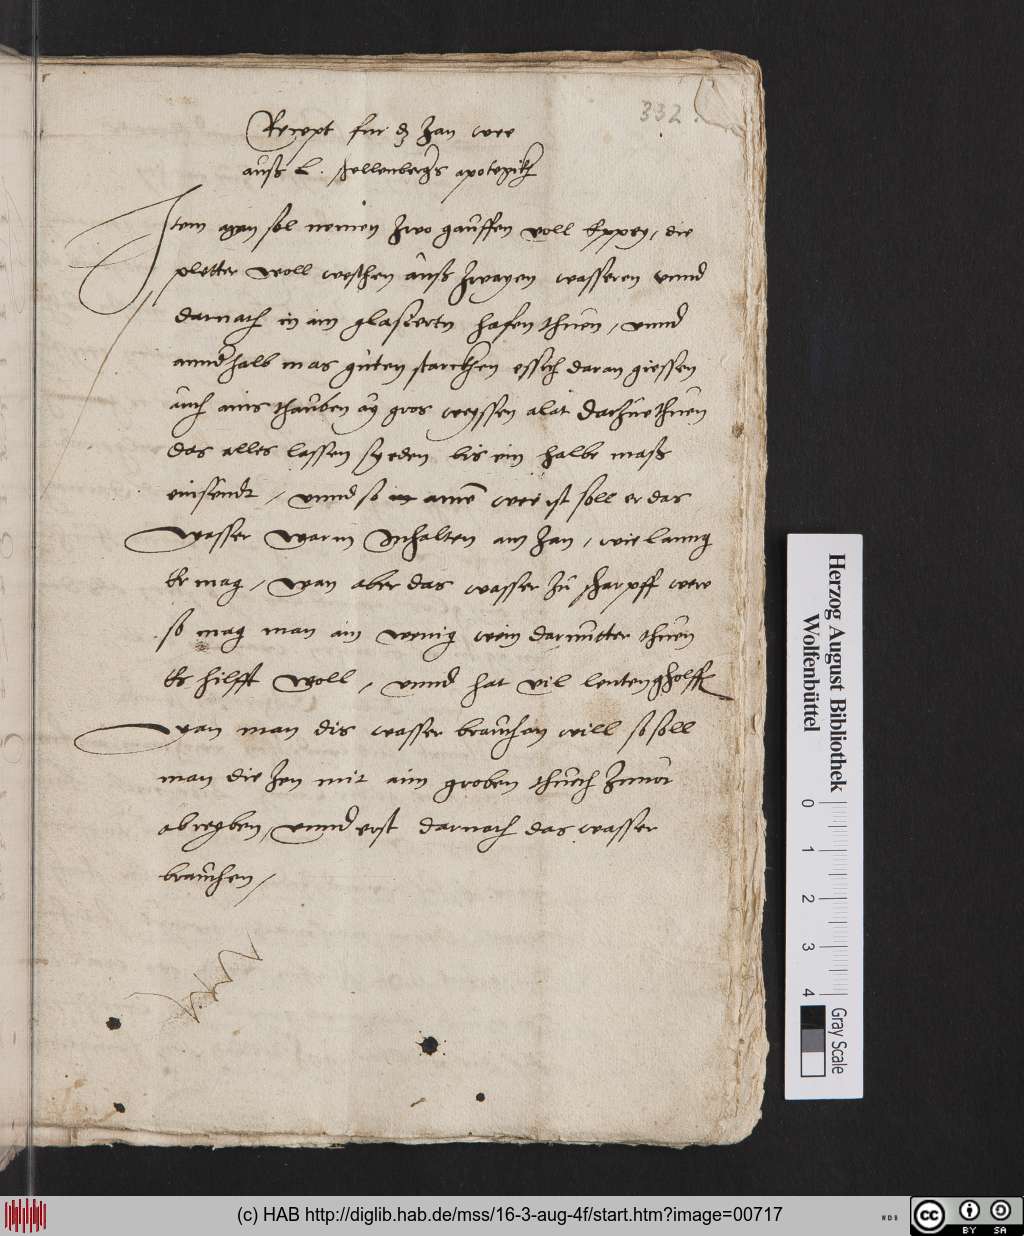 332
Recept fur dz Zan wee
auss L. schellenbergs apotegkh
Item man sol nemen zwo gauffen voll Eppen, die
pletter woll weschen auss zwayen wasseren vnnd
darnach in ain glasiertn hafen thuen, vnnd
annderhalb mas guten starckhen essich daran giessen
auch ains thauben ay gros weyssen alat darzue thuen
das alles lassen syeden bis ein halbe mass
einseudt, vnnd so aine wee ist soll er das
wasser warm Inhalten am Zan, wie lanng
Er mag, wan aber das wasser zu scharpff were
so mag man ain wenig wein darunter thuen
Es hilfft woll, vnnd hat vil leuten gholffen
wan man dis wasser brauchen will so soll
man die Zen mit aim groben thuech zuuor
abreyben, vnnd erst darnach das wasser
brauchen,
Herzog August Bibliothek
Wolfenbüttel
0 1 2 3 4
Gray Scale
(c) HAB http://diglib.hab.de/mss/16-3-aug-4f/start.htm?image=00717
cc BY SA